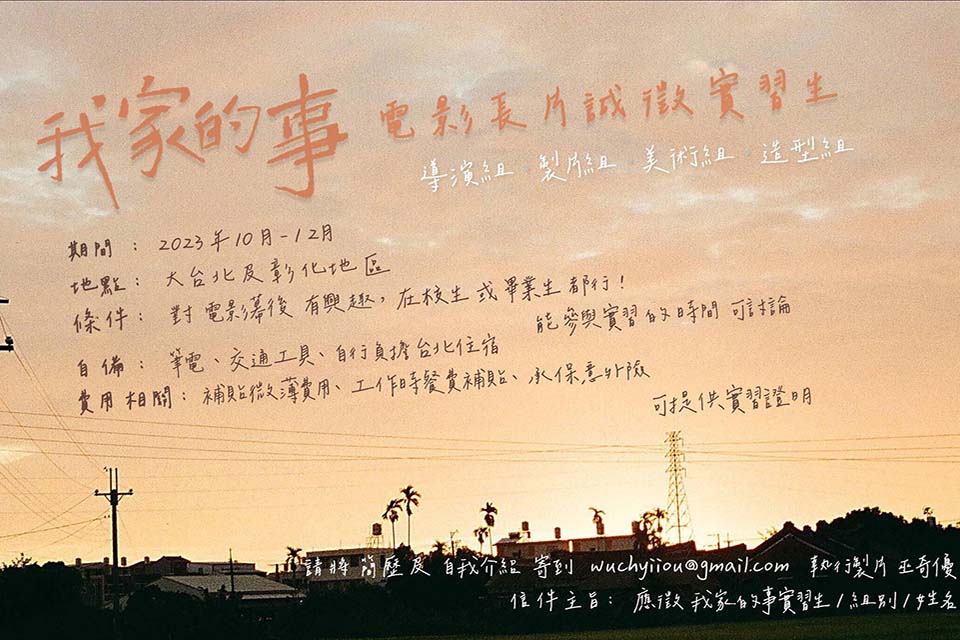 我家的事 電影長片誠徵實習生
導演組·製片組·美術組·造型組
期間：2023年10月-12月
地點：大台北及彰化地區
條件：對電影幕後有興趣，在校生或畢業生都行！
能參與實習的時間可討論
自備：筆電、交通工具、自行負擔台北住宿
費用相關：補貼微薄費用、工作時餐費補貼、承保意外險
可提供實習證明
請將簡歷及自我介紹寄到 wuchyiiou@gmail.com 執行製片 巫奇優
信件主旨：應徵我家的事實習生/組別/姓名